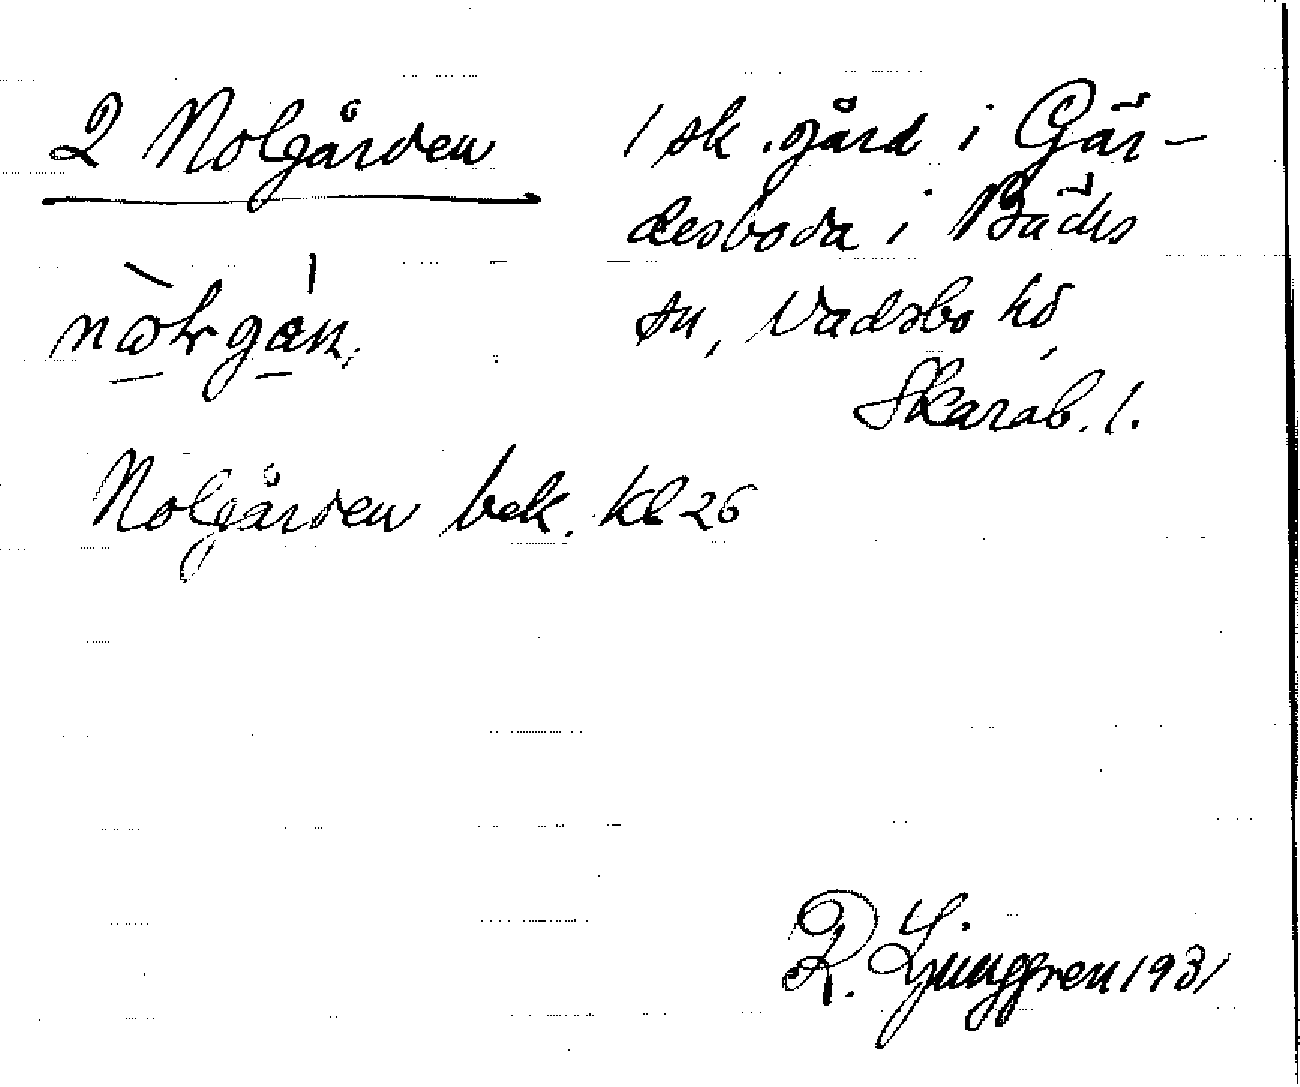 2 Nolgården
1 sk. gård i Gär-
desboda i Bäcks
sn, Vadsbo hd,
Skarab. l.
Nolgården bek. Kl 26
R. Ljunggren 1931